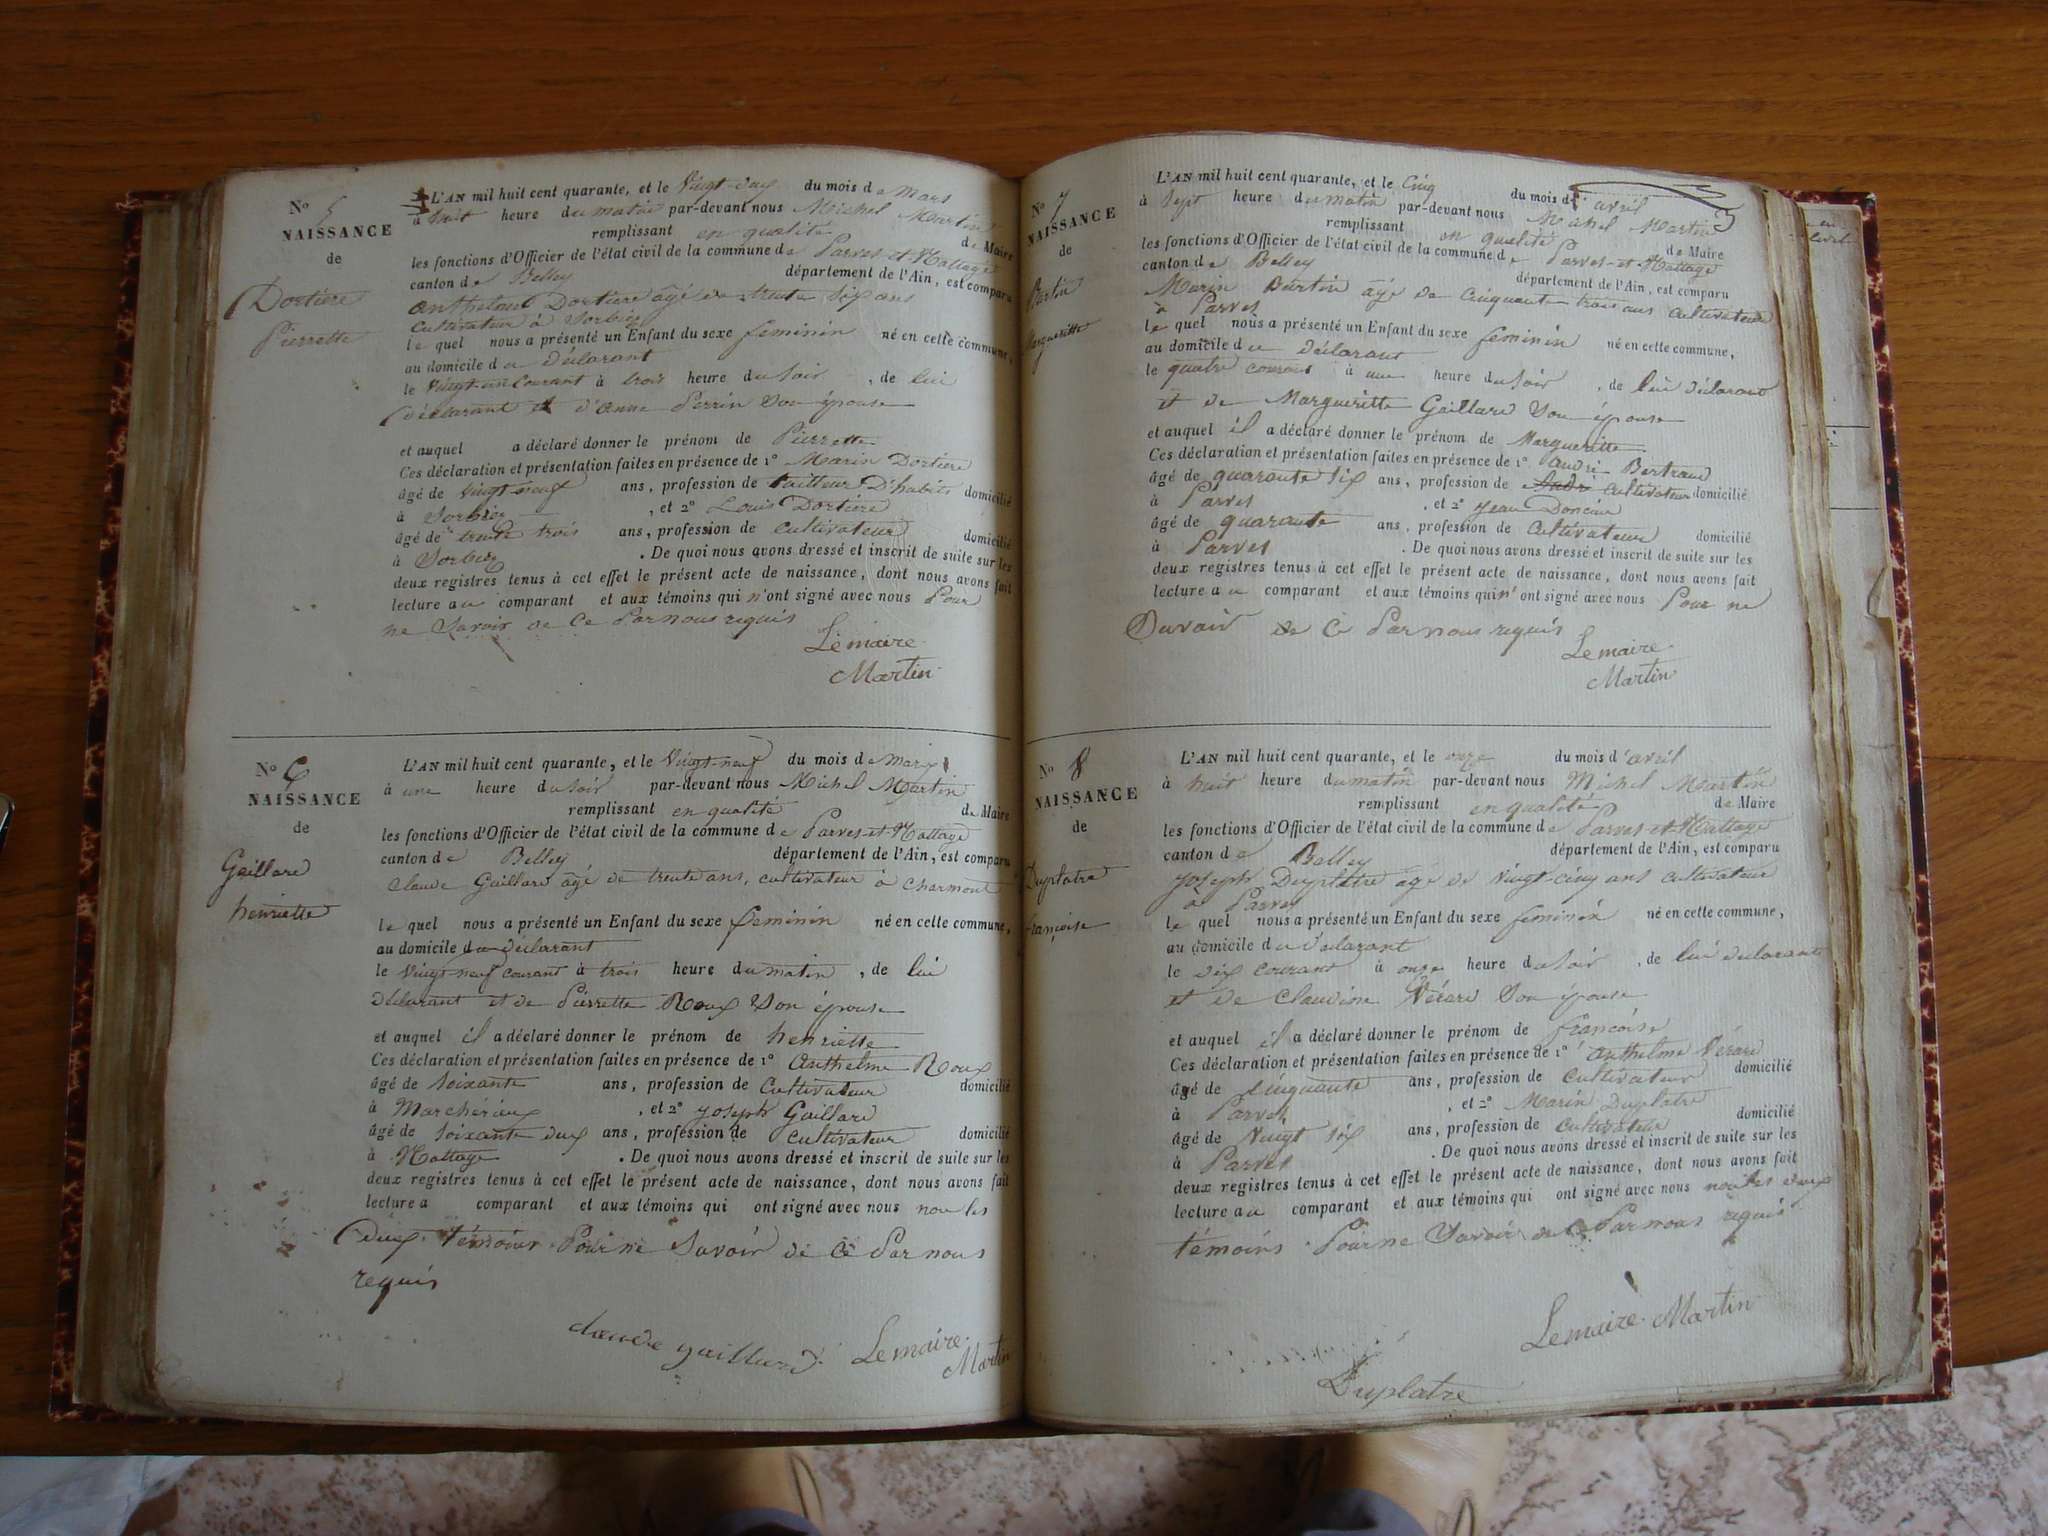 N° 5
NAISSANCE
de
Dortière
Pierrette
L'AN mil huit cent quarante, et le vingt-deux du mois de Mars
à huit heure du matin par-devant nous Michel Martin
remplissant en qualité de Maire
les fonctions d'Officier de l'état civil de la commune de Parves-et-Nattage
canton de Belley département de l'Ain, est comparu
anthelme Dortiere âgé de trente six ans
cultivateur à Sorbier
le quel nous a présenté un Enfant du sexe feminin né en cette commune,
au domicile du déclarant
le vingt-un courant à trois heure du soir, de lui
déclarant et d'anne Perrin son épouse
et auquel a déclaré donner le prénom de Pierrette
Ces déclaration et présentation faites en présence de 1° Marin Dortiere
âgé de vingt-neuf ans, profession de tailleur D'habits domicilié
à Sorbier, et 2° Louis Dortiere
âgé de trente trois ans, profession de cultivateur domicilié
à Sorbier. De quoi nous avons dressé et inscrit de suite sur les
deux registres tenus à cet effet le présent acte de naissance, dont nous avons fait
lecture au comparant et aux témoins qui n'ont signé avec nous Pour
ne Savoir de Ce Par nous requis
Lemaire
Martin
N° 6
NAISSANCE
de
Gaillard
henriette
L'AN mil huit cent quarante, et le vingt-neuf du mois de Mars
à une heure du soir par-devant nous Michel Martin
remplissant en qualité de Maire
les fonctions d'Officier de l'état civil de la commune de Parves-et-Nattage
canton de Belley département de l'Ain, est comparu
claude Gaillard âgé de trente ans, cultivateur à charmont
le quel nous a présenté un Enfant du sexe feminin né en cette commune,
au domicile du déclarant
le vingt-neuf courant à trois heure du matin, de lui
déclarant et de Pierrette Roux son épouse
et auquel il a déclaré donner le prénom de henriette
Ces déclaration et présentation faites en présence de 1° Anthelme Roux
âgé de soixante ans, profession de cultivateur domicilié
à Marchérieu, et 2° joseph Gaillard
âgé de soixante deux ans, profession de cultivateur domicilié
à Nattage. De quoi nous avons dressé et inscrit de suite sur les
deux registres tenus à cet effet le présent acte de naissance, dont nous avons fait
lecture a comparant et aux témoins qui ont signé avec nous non les
deux témoins Pour ne Savoir de Ce Par nous
requis
claude gaillard Lemaire
Martin
N° 7
NAISSANCE
de
Burtin
Marguerittte
L'AN mil huit cent quarante, et le cinq du mois d'avril
à sept heure du matin par-devant nous Michel Martin
remplissant en qualité de Maire
les fonctions d'Officier de l'état civil de la commune de Parves-et-Nattage
canton de Belley département de l'Ain, est comparu
Marin Burtin âgé de cinquante trois ans cultivateur
à Parves
le quel nous a présenté un Enfant du sexe feminin né en cette commune,
au domicile du déclarant
le quatre courant à une heure du soir, de lui déclarant
et de Margueritte Gaillard son épouse
et auquel il a déclaré donner le prénom de Margueritte
Ces déclaration et présentation faites en présence de 1° André Bertrand
âgé de quarante six ans, profession de André cultivateur domicilié
à Parves, et 2° Jean Doncin
âgé de quarante ans, profession de cultivateur domicilié
à Parves. De quoi nous avons dressé et inscrit de suite sur les
deux registres tenus à cet effet le présent acte de naissance, dont nous avons fait
lecture au comparant et aux témoins qui n'ont signé avec nous Pour ne
Savoir de Ce Par nous requis
Lemaire
Martin
N° 8
NAISSANCE
de
Duplatre
françoise
L'AN mil huit cent quarante, et le onze du mois d'avril
à huit heure du matin par-devant nous Michel Martin
remplissant en qualité de Maire
les fonctions d'Officier de l'état civil de la commune de Parves-et-Nattage
canton de Belley département de l'Ain, est comparu
joseph Duplatre âgé de vingt-cinq ans cultivateur
à Parves
le quel nous a présenté un Enfant du sexe feminin né en cette commune,
au domicile du déclarant
le dix courant à onze heure du soir, de lui déclarant
et de claudine Vérard son épouse
et auquel il a déclaré donner le prénom de francoise
Ces déclaration et présentation faites en présence de 1° anthelme Vérard
âgé de cinquante ans, profession de cultivateur domicilié
à Parves, et 2° Marin Duplatre
âgé de vingt six ans, profession de cultivateur domicilié
à Parves. De quoi nous avons dressé et inscrit de suite sur les
deux registres tenus à cet effet le présent acte de naissance, dont nous avons fait
lecture au comparant et aux témoins qui ont signé avec nous non les deux
témoins Pour ne Savoir de Ce Par nous requis
Lemaire Martin
Duplatre